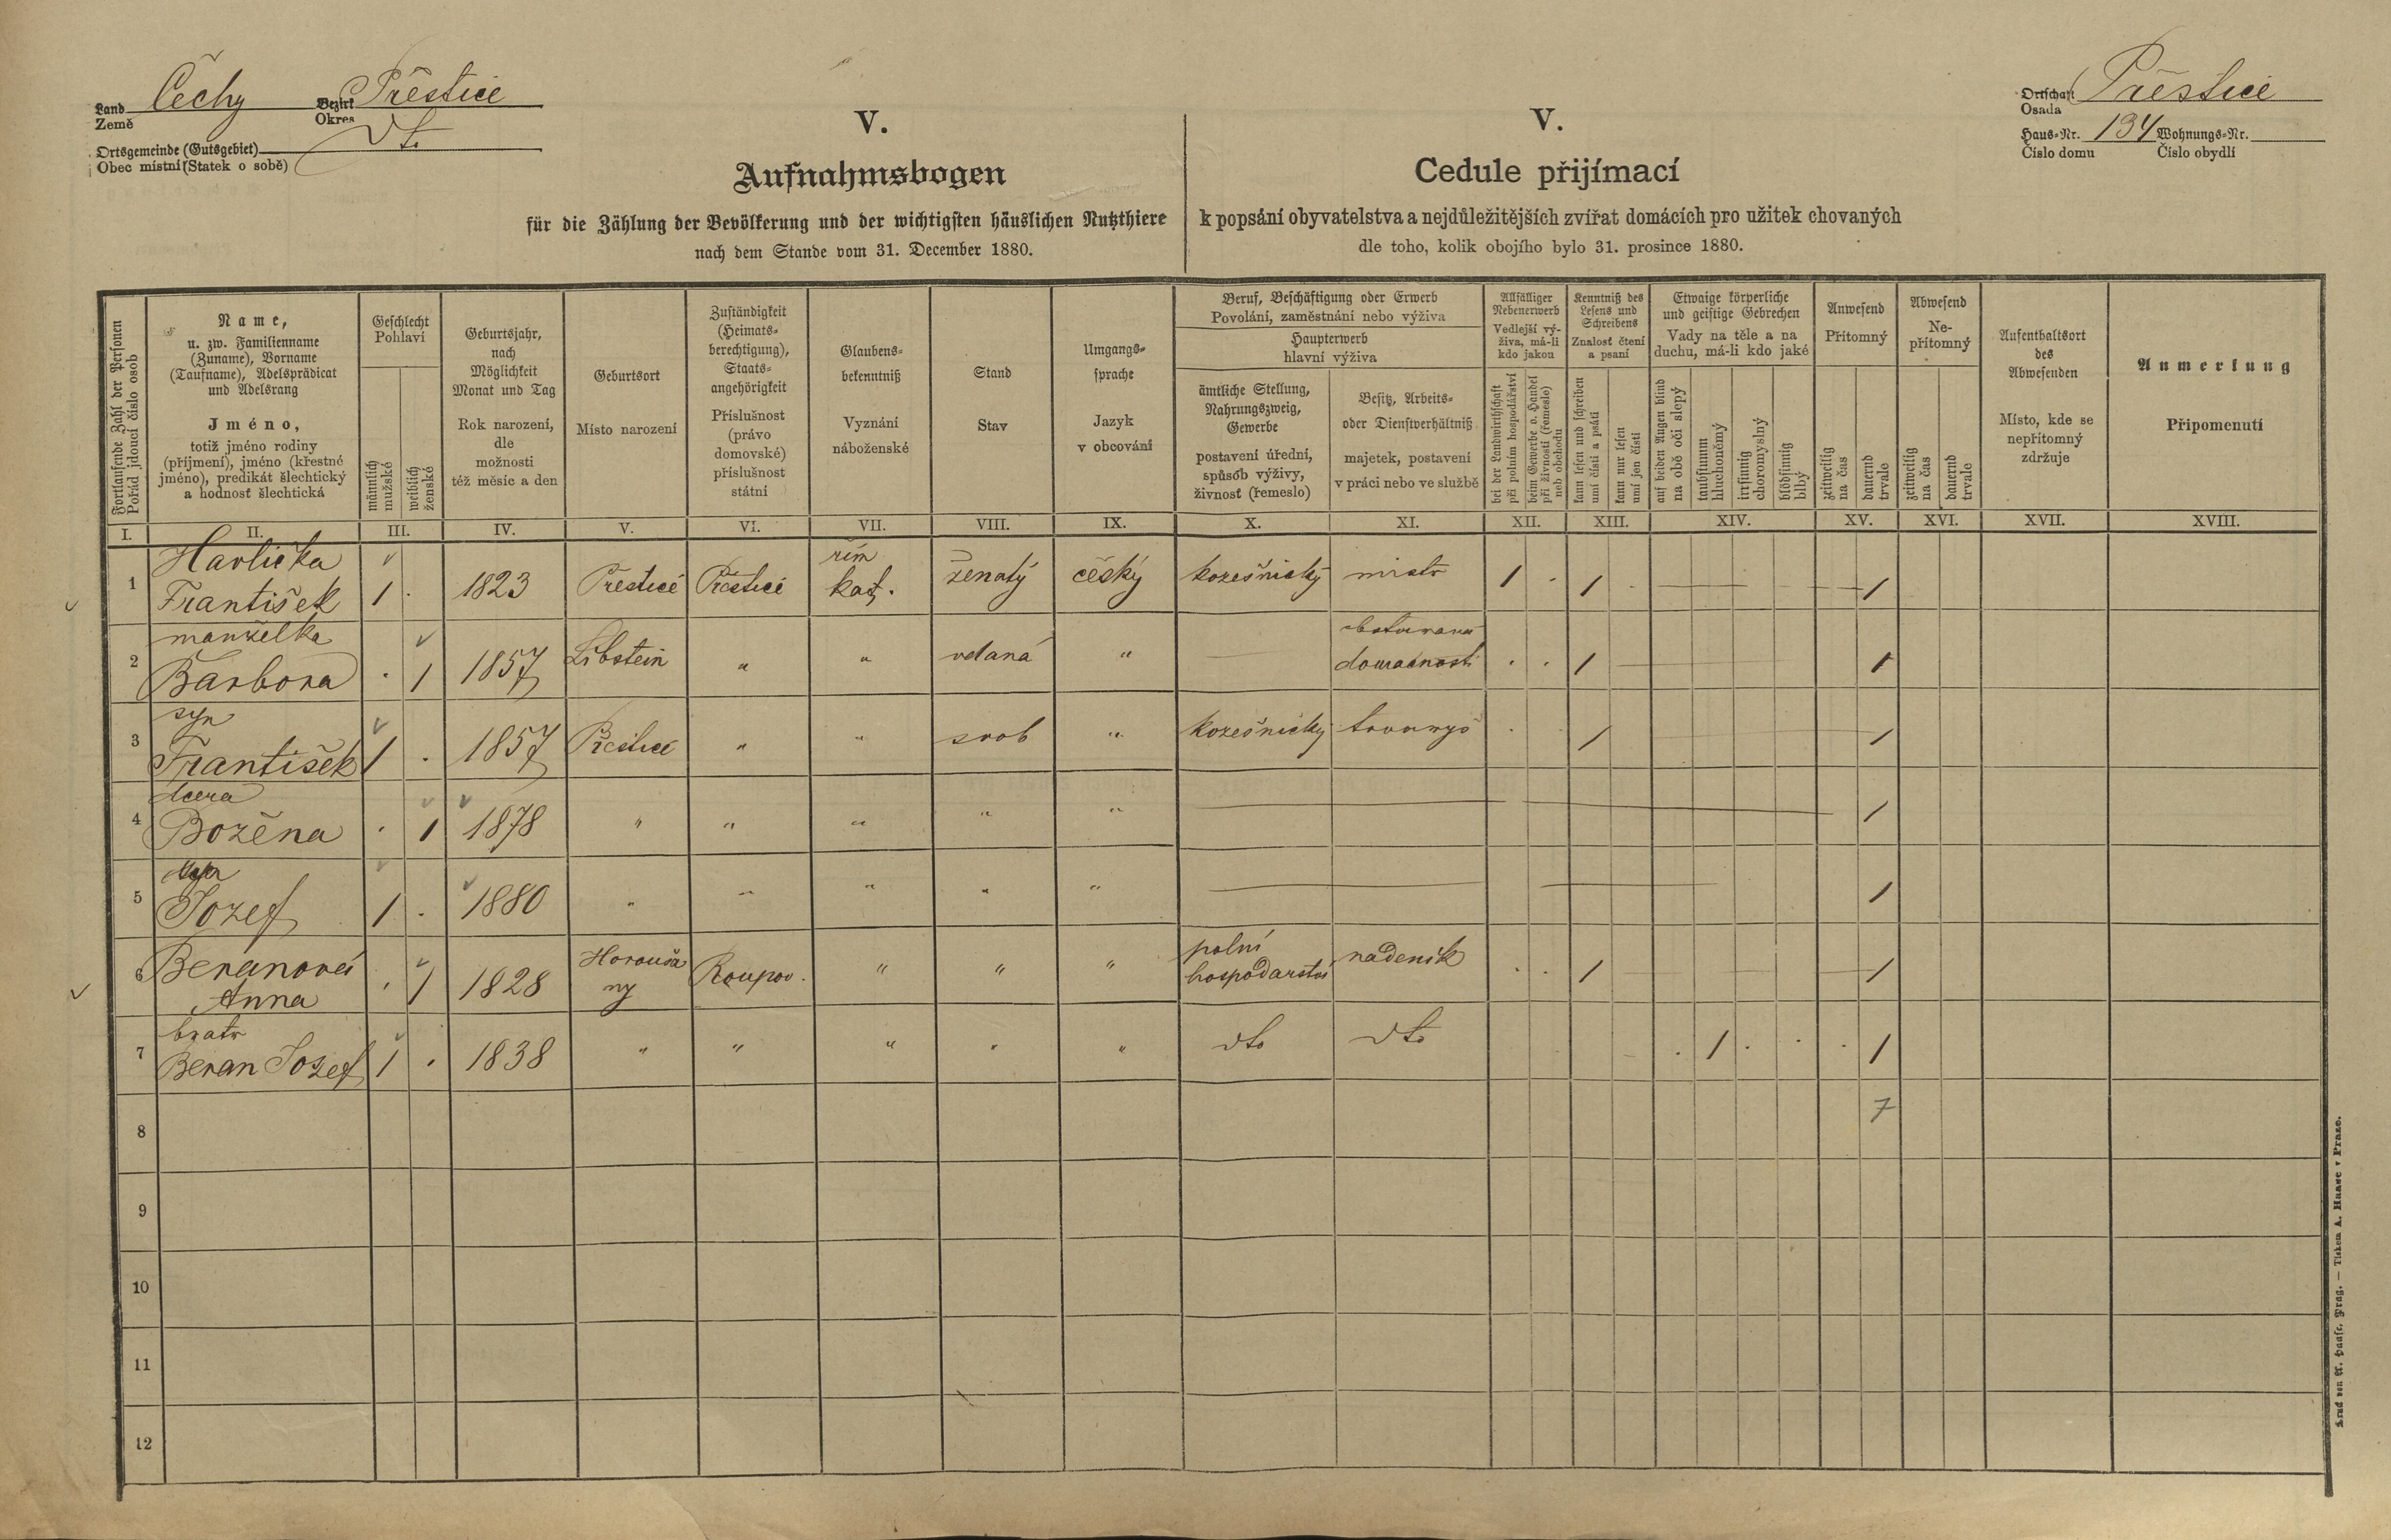 Land Čechy Bezirk Přestice
Země Okres
Ortsgemeinde (Gutsgebiet) dto
Obec místní (Statek o sobě)
Ortschaft Přestice
Osada
Haus-Nr. 134 Wohnungs-Nr.
Číslo domu Číslo obydlí
V.
Aufnahmsbogen
für die Zählung der Bevölkerung und der wichtigsten häuslichen Nutzthiere
nach dem Stande vom 31. December 1880.
V.
Cedule přijímací
k popsání obyvatelstva a nejdůležitějších zvířat domácích pro užitek chovaných
dle toho, kolik obojího bylo 31. prosince 1880.
Fortlaufende Zahl der Personen
Pořád jdoucí číslo osob
Name,
u. zw. Familienname
(Zuname), Vorname
(Taufname), Adelsprädicat
und Adelsrang
Jméno,
totiž jméno rodiny
(příjmení), jméno (křestné
jméno), predikát šlechtický
a hodnosť šlechtická
Geschlecht
Pohlaví
männlich
mužské
weiblich
ženské
Geburtsjahr,
nach
Möglichkeit
Monat und Tag
Rok narození,
dle
možnosti
též měsíc a den
Geburtsort
Místo narození
Zuständigkeit
(Heimats-
berechtigung),
Staats-
angehörigkeit
Příslušnost
(právo
domovské)
příslušnost
státní
Glaubens-
bekenntniß
Vyznání
náboženské
Stand
Stav
Umgangs-
sprache
Jazyk
v obcování
Beruf, Beschäftigung oder Erwerb
Povolání, zaměstnání nebo výživa
Haupterwerb
hlavní výživa
ämtliche Stellung,
Nahrungszweig,
Gewerbe
postavení úřední,
spůsob výživy,
živnosť (řemeslo)
Besitz, Arbeits-
oder Dienstverhältniß
majetek, postavení
v práci nebo ve službě
Allfälliger
Nebenerwerb
Vedlejší vý-
živa, má-li
kdo jakou
bei der Landwirthschaft
při polním hospodářství
beim Gewerbe o. Handel
při živnosti (řemeslo)
neb obchodu
Kenntniß des
Lesens und
Schreibens
Znalosť čtení
a psaní
kann lesen und schreiben
umí čísti a psáti
kann nur lesen
umí jen čísti
Etwaige körperliche
und geistige Gebrechen
Vady na těle a na
duchu, má-li kdo jaké
auf beiden Augen blind
na obě oči slepý
taubstumm
hluchoněmý
irrsinnig
choromyslný
blödsinnig
blbý
Anwesend
Přítomný
zeitweilig
na čas
dauernd
trvale
Abwesend
Ne-
přítomný
zeitweilig
na čas
dauernd
trvale
Aufenthaltsort
des
Abwesenden
Místo, kde se
nepřítomný
zdržuje
Anmerkung
Připomenutí
I. II. III. IV. V. VI. VII. VIII. IX. X. XI. XII. XIII. XIV. XV. XVI. XVII. XVIII.
Havlička
1 František 1 . 1823 Přestice Přestice řím kat. ženatý český kožešnický mistr 1 . 1 . 1
manželka
2 Barbora . 1 1857 Libstein " " vdaná " domácnosti . . 1 1
syn
3 František 1 . 1857 Přestice " " svob " kožešnický tovaryš . 1 1
dcera
4 Božena . 1 1878 " " " " " 1
syn
5 Jozef 1 . 1880 " " " " " 1
6 Beranová
Anna . 1 1828 Horouša
ny Roupov. " " " polní
hospodarství nadeník . . 1 1
bratr
7 Beran Jozef 1 . 1838 " " " " " dto dto . 1 . . . 1
7
8
9
10
11
12
Druck von A. Haase, Prag. — Tiskem A. Haase v Praze.